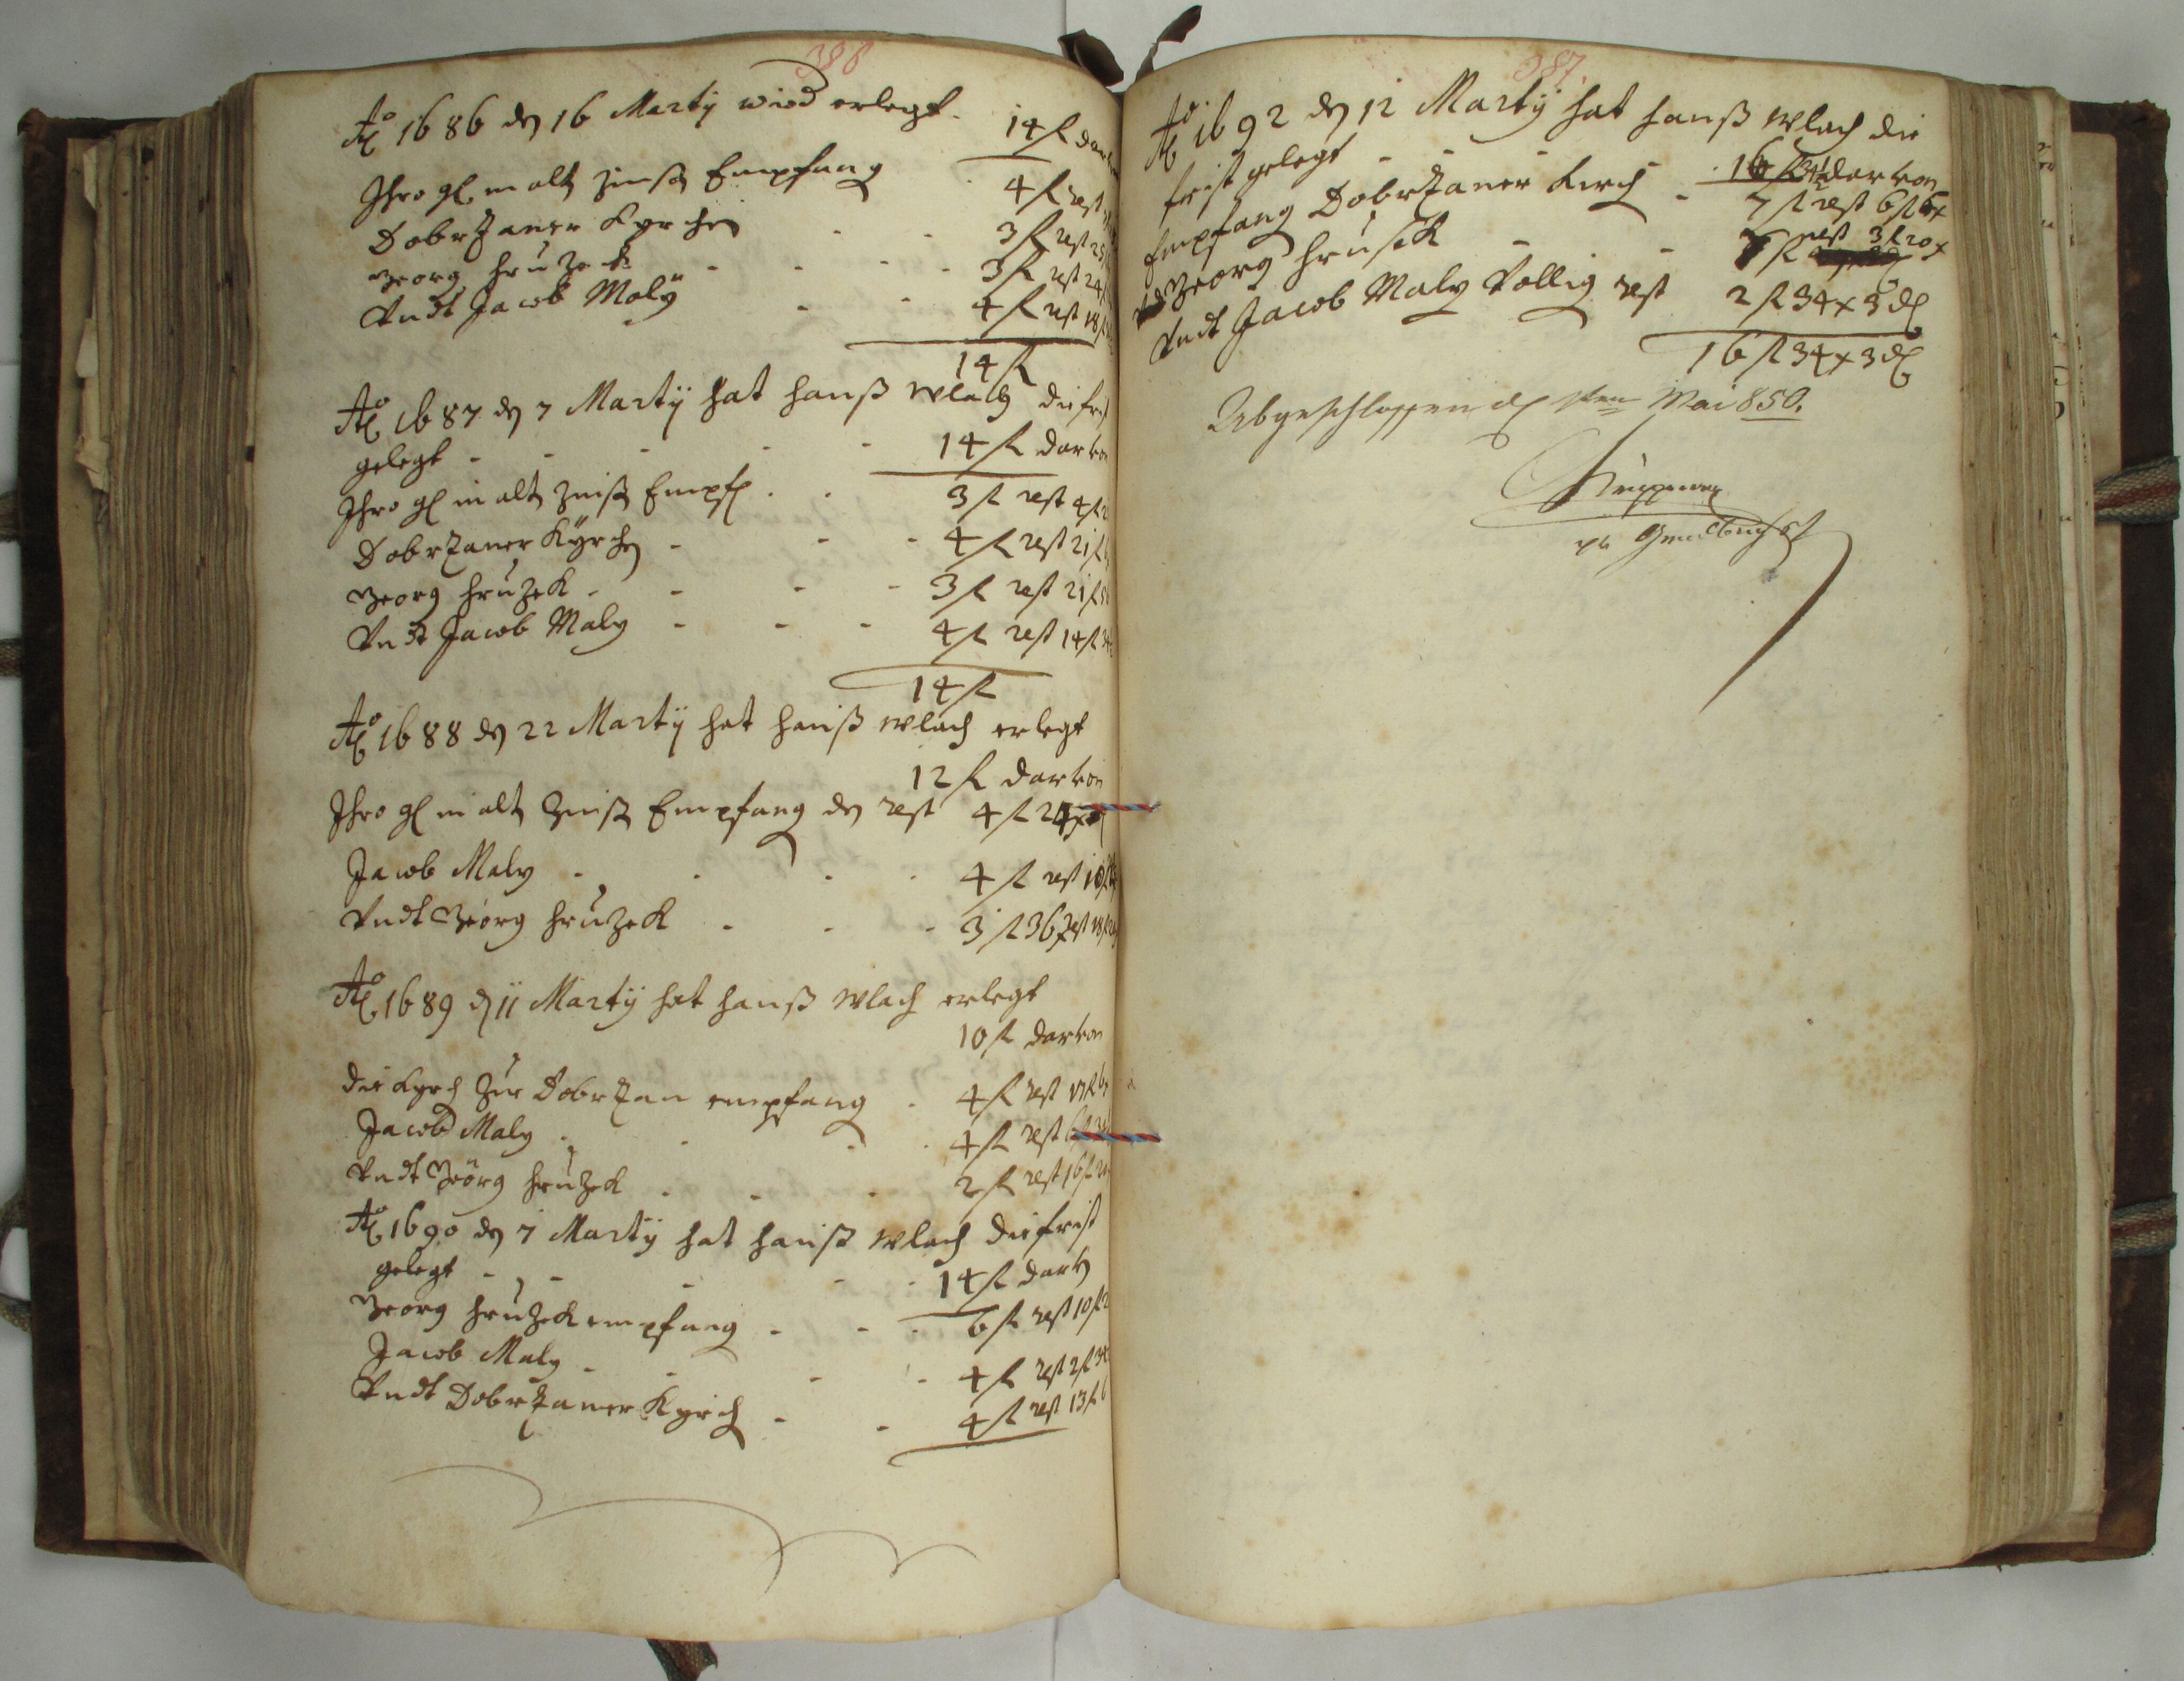 386
Aō 1686 dn 16 Martÿ wird erlegt
14 fl dar
Ihro gl in alt Zinß Empfang
4 fl rest
Dobrzaner Kyrchen - - 3 fl rest 25
Georg Hruzek - - - 3 fl rest 24
Vndt Jacob Malÿ - - 4 fl rest 18
14 fl
Aō 1687 dn 7 Martÿ hat Hanß Wlach die frist
gelegt - - - - 14 fl darvon
Ihro gl in alt Zinß Empf . . 3 fl rest 4 fl
Dobrzaner Kÿrchen - - - 4 fl rest 21 fl
Georg Hruzek - - - - 3 fl rest 21 fl
Vndt Jacob Maly - - - 4 fl rest 14 fl 34
14 fl
Aō 1688 dn 22 Martÿ hat Hanß Wlach erlegt
12 fl darvon
Ihro gl in alt Zinß Empfang dn rest 4 fl 24 x
Jacob Maly - - - - 4 fl rest 10 fl
Vndt Georg Hruzek - - - 3 fl 36 x rest 18 fl
Aō 1689 dn 11 Martÿ hat Hanß Wlach erlegt
10 fl darvon
Die Kyrch Zur Dobrzan empfang . 4 fl rest 17 fl 6
Jacob Maly . - - . 4 fl rest 6 fl 34
Vndt Georg Hruzek . - - 2 fl rest 16 fl
Aō 1690 dn 7 Martÿ hat Hanß Wlach die frist
gelegt - - - - - 14 fl darvo
Georg Hruzek empfang - - - 6 fl rest 10 fl
Jacob Maly - - - - 4 fl rest 2 fl 34
Vndt Dobrzaner Kyrch - - 4 fl rest 13 fl 6
387.
Aō 1692 dn 12 Martÿ hat Hanß Wlach die
frist gelegt - - - - 16 fl darvon
Empfang Dobrzaner Kirch - 7 fl rest 6 fl 6 x
Georg Hrusek - - - 7 fl rest 3 fl 20 x
Vndt Jacob Maly Vollig rest 2 fl 34 x 3 d
16 fl 34 x 3 d
Abgeschlossen d 1ten Mai 850.